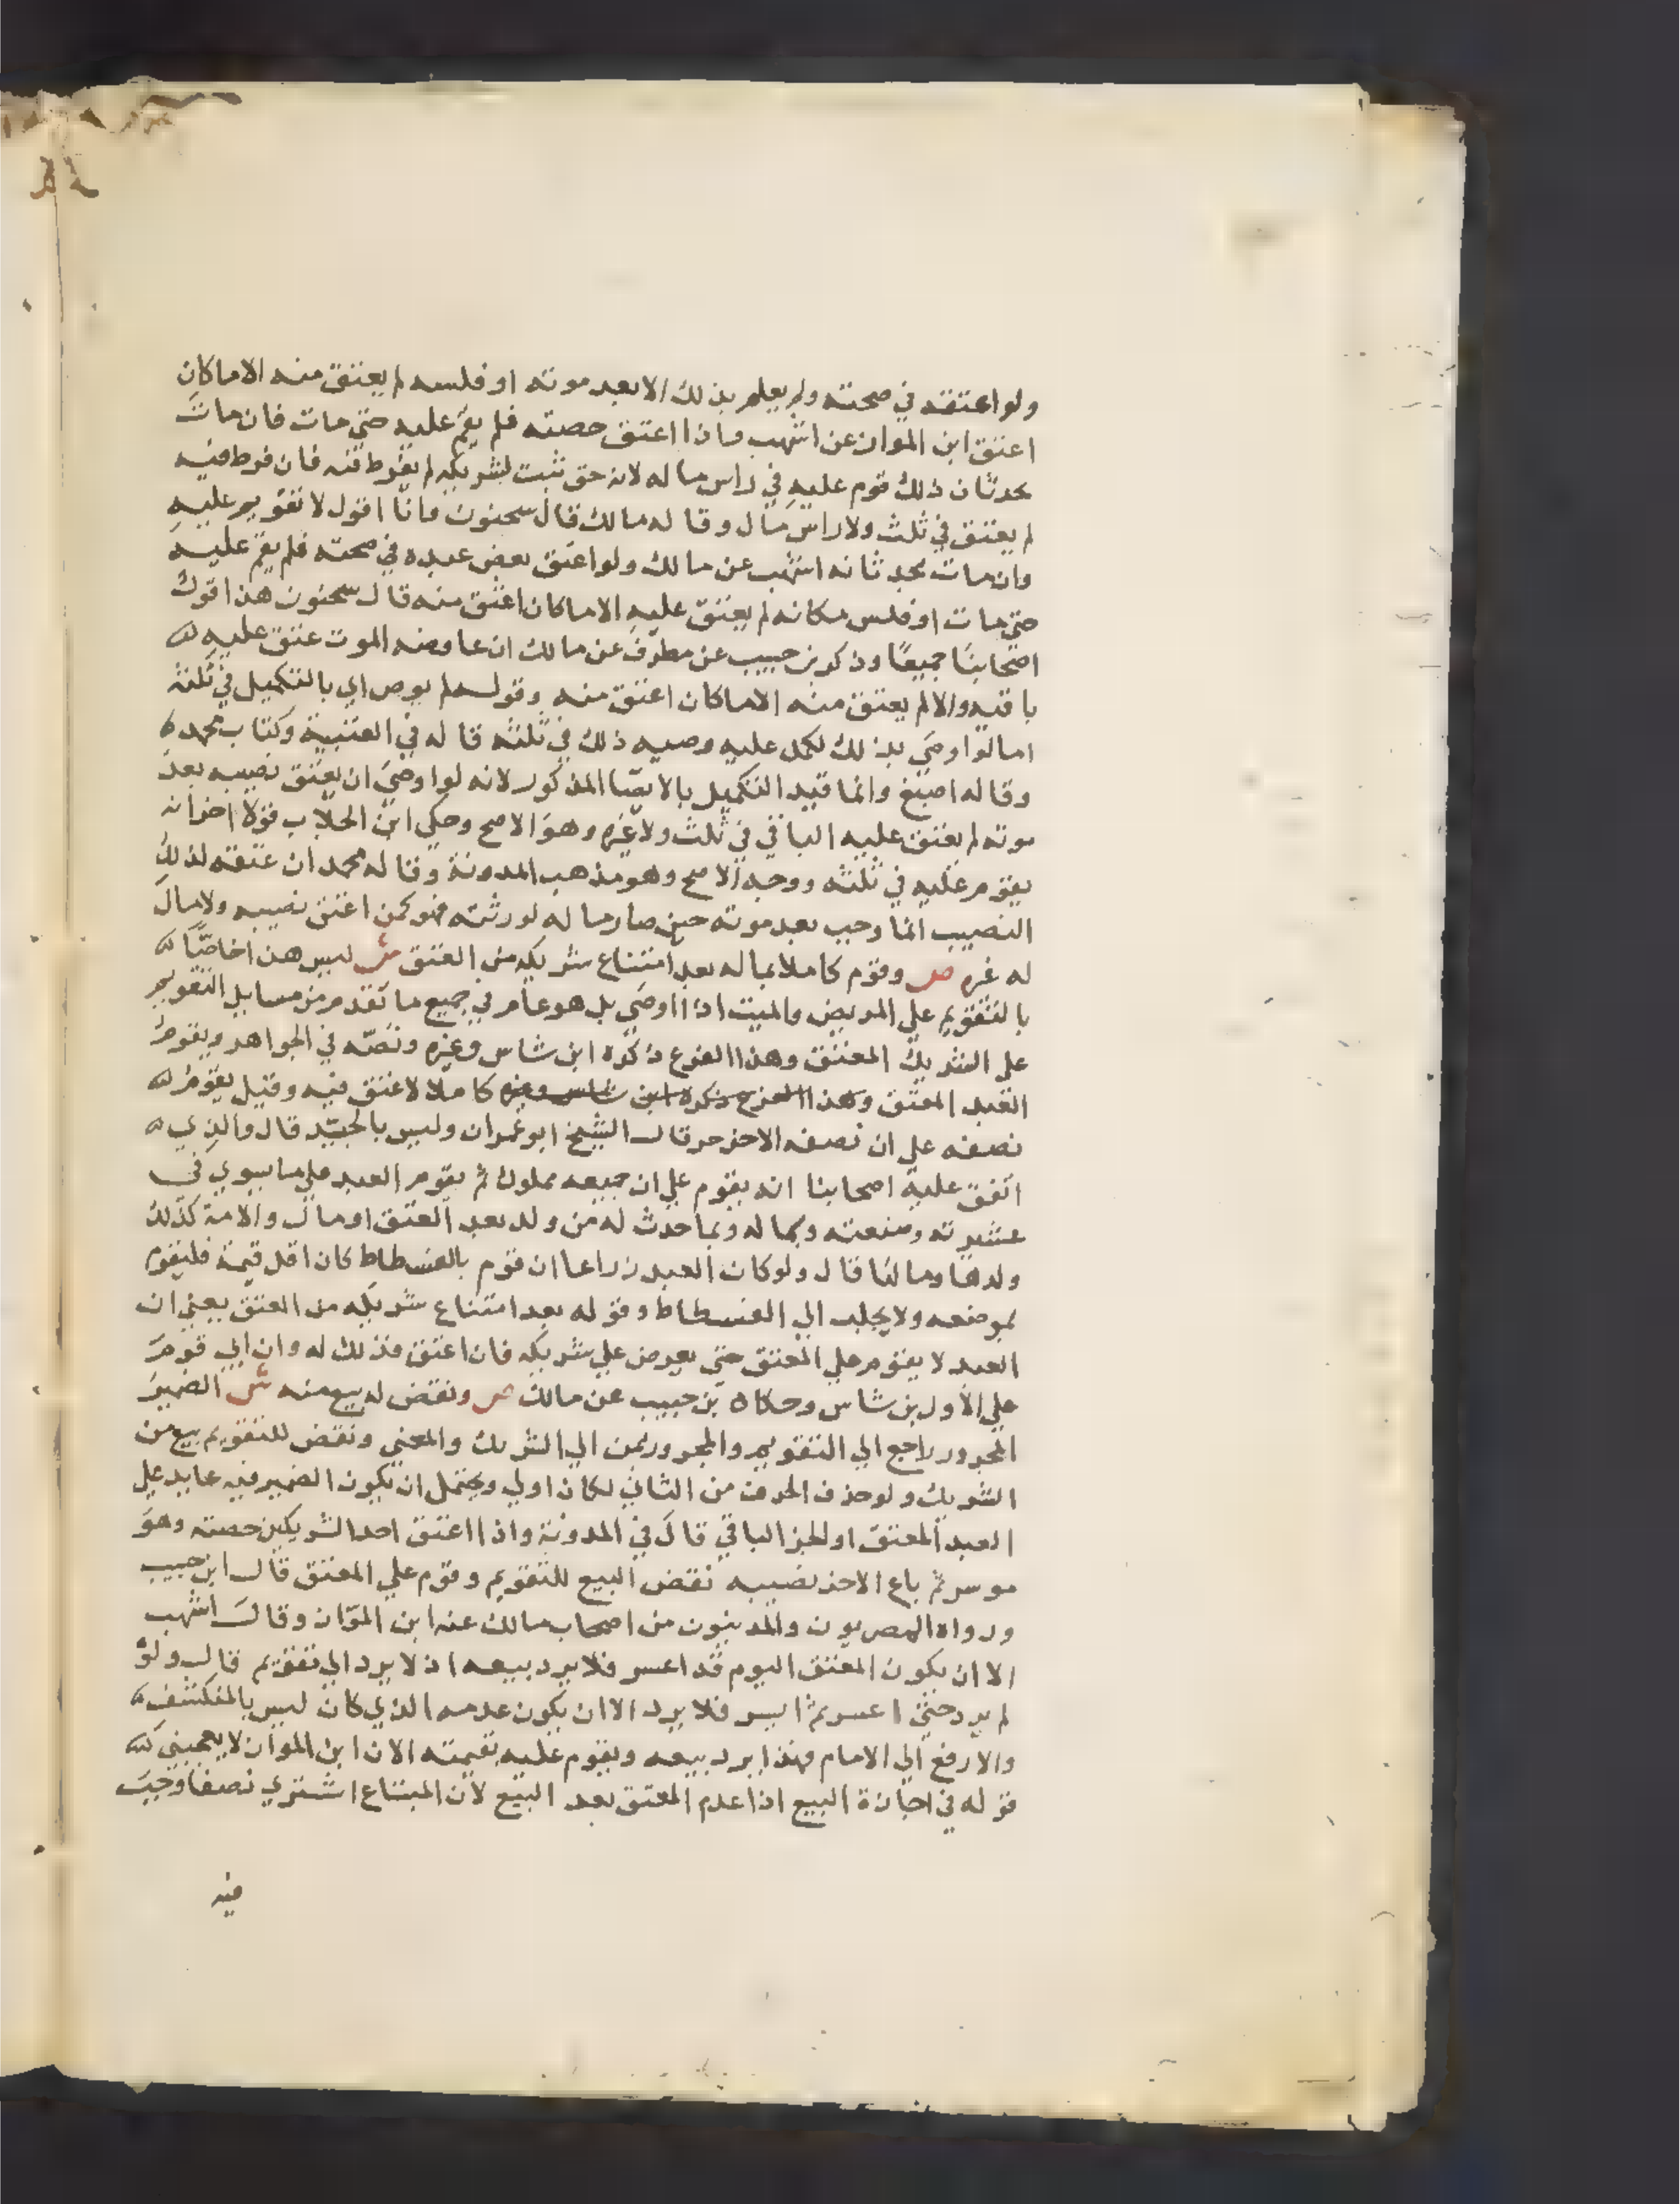 ولو اعتقه في صحته ولم يعلم بذلك الا بعد موته او فلسه لم يعتق منه الا ما كان
اعتق ابن المواز عن اشهب واذا اعتق حصته فلم يقم عليه حتي مات فان مات
بحدثان ذلك قوم عليه في راس ماله لانه حق ثبت لشريكه لم يفرط فيه فان فرط فيه
لم يعتق في ثلث ولا راس مال وقاله مالك قال سحنون وانا اقول لا تقويم عليه
وان مات بحدثانه اشهب عن مالك ولو اعتق بعض عبده في صحته فلم يقم عليه
حتي مات او فلس مكانه لم يعتق عليه الا ما كان اعتق منه قال سحنون هذا قول
اصحابنا جميعا وذكر بن حبيب عن مطرف عن مالك ان عاوضه الموت عتق عليه
باقيه والا لم يعتق منه الا ما كان اعتق منه وقوله لم يوص اي بالتكميل في ثلثه
اما لو اوصي بذلك لكمل عليه وصيه ذلك في ثلثه قاله في العتبية وكتاب محمد
وقاله اصبغ وانما قيد التكميل بالايصا المذكور لانه لو اوصي ان يعتق نصيبه بعد
موته لم يعتق عليه الباقي في ثلث ولا غيره وهو الاصح وحكي ابن الجلاب قولا اخر انه
يقوم عليه في ثلثه ووجه الاصح وهو مذهب المدونة وقاله محمد ان عتقه لذلك
النصيب انما وجب بعد موته حين صار ماله لورثته فهو كمن اعتق نصيبه ولا مال
له غيره ص وقوم كاملا بماله بعد امتناع شريكه من العتق ش ليس هذا خاصا
بالتقويم علي المريض والميت اذا اوصي بل هو عام في جميع ما تقدم من مسايل التقويم
علي الشريك المعتق وهذا الفرع ذكره ابن شاس وغيره ونصه في الجواهر ويقوم
العبد المعتق وهذا الفرع ذكره ابن شاس وغيره كاملا لا عتق فيه وقيل يقوم
نصفه علي ان نصفه الاخر حر قال الشيخ ابو عمران وليس بالجيد قال والذي
اتفق عليه اصحابنا انه يقوم علي ان جميعه مملوك ثم يقوم العبد علي ما يسوي في
عشيرته وصنعته وبماله وبما حدث له من ولد بعد العتق او مال والامة كذلك
ولدها ومالها قال ولو كان العبد زراعا ان قوم بالفسطاط كان اقل قيمة فليقوم
بموضعه ولا يجلب الي الفسطاط وقوله بعد امتناع شريكه من العتق يعني ان
العبد لا يقوم علي المعتق حتي يعرض علي شريكه فان اعتق فذلك له وان ابي قوم
علي الاول بن شاس وحكاه بن حبيب عن مالك ص ونقض له بيع منه ش الضمير
المجرور راجع الي التقويم والمجرور بمن الي الشريك والمعني ونقض للتقويم بيع من
الشريك ولو حذف الحرف من الثاني لكان اولي ويحتمل ان يكون الضمير فيه عايد علي
العبد المعتق او لجز الباقي قال في المدونة واذا اعتق احد الشريكين حصته وهو
موسر ثم باع الاخر نصيبه نقض البيع للتقويم وقوم علي المعتق قال ابن حبيب
ورواه المصريون والمدنيون من اصحاب مالك عنه ابن المواز وقال اشهب
الا ان يكون المعتق اليوم قد اعسر فلا يرد بيعه اذ لا يرد الي تقويم قال ولو
لم يرد حتي اعسر ثم ايسر فلا يرد الا ان يكون عدمه الذي كان ليس بالمنكشف
والا رفع الي الامام فهذا يرد بيعه ويقوم عليه بقيمته الان ابن المواز لا يعجبني
قوله في اجازة البيع اذا عدم المعتق بعد البيع لان المبتاع اشتري نصفا وجب
فيه